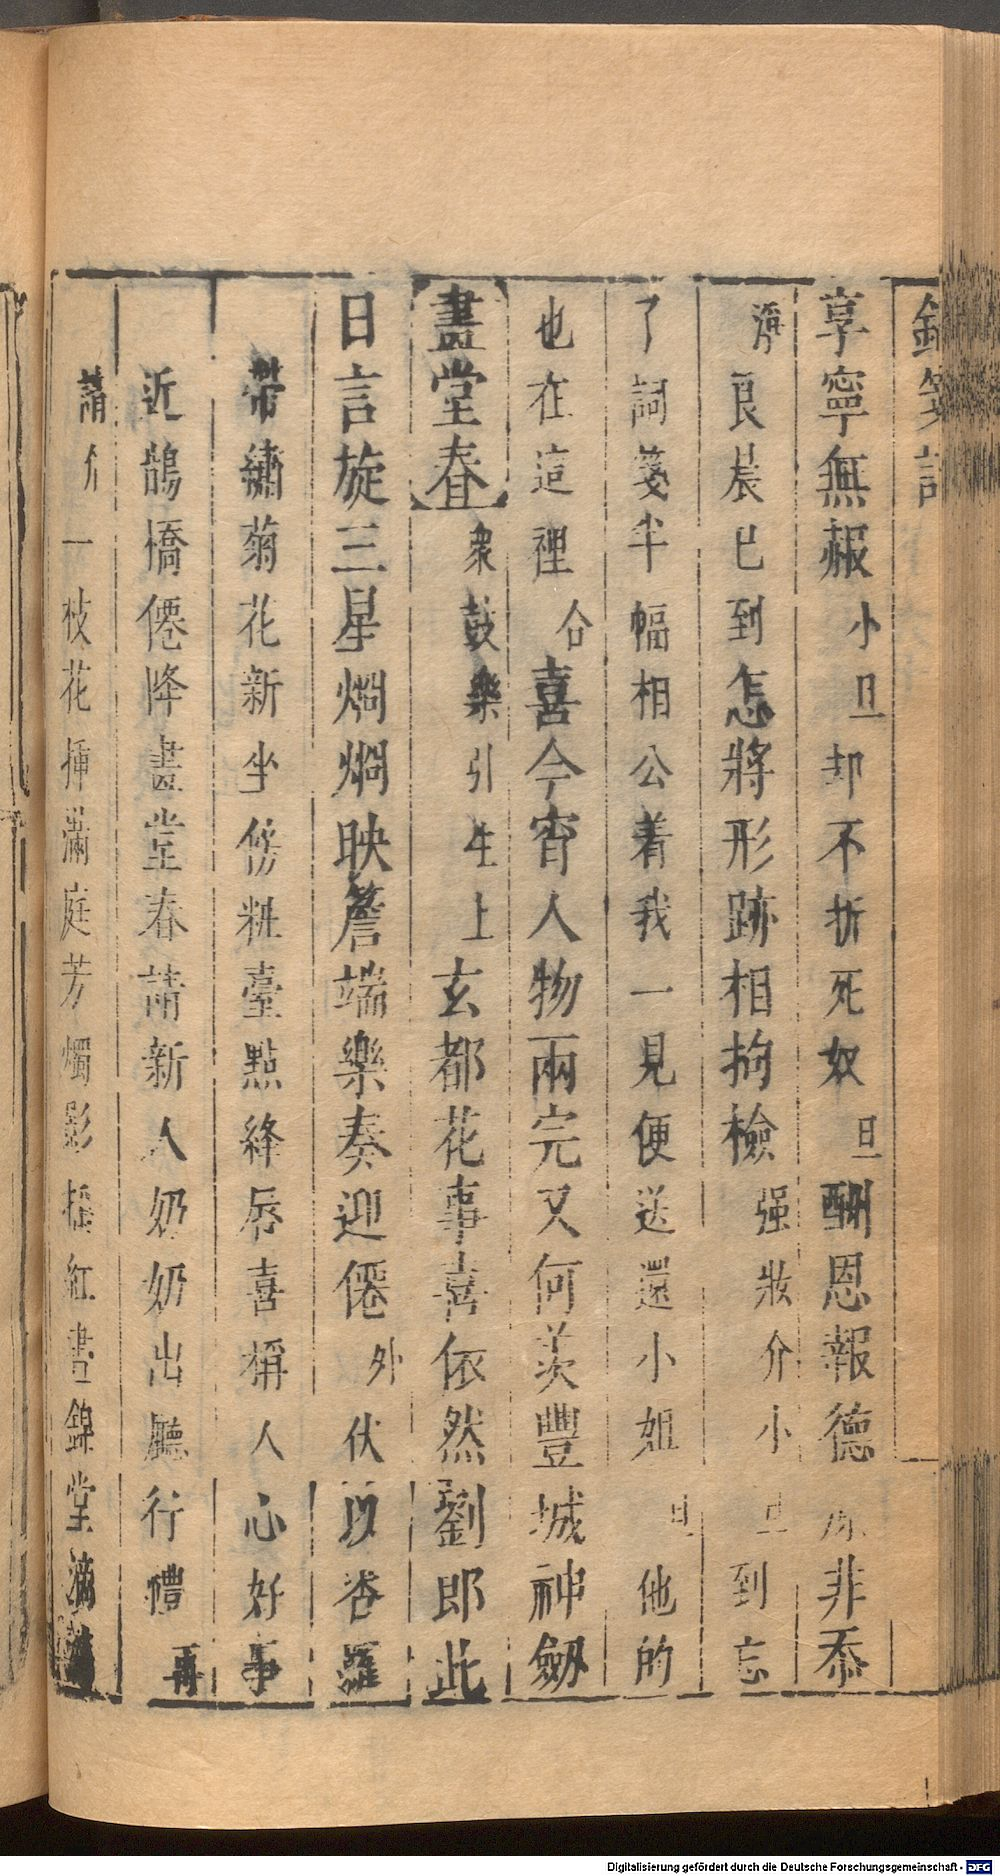 箋
享寧無赧小旦却不折死奴旦酬恩報德非忝
良辰已到怎將形跡相拘檢强妝介小旦到忘
了詞箋半幅相公着我一見便送還小姐旦他的
也在這裡合喜今宵人物兩完又何羨豐城神劒
畫堂春衆鼓樂引生上玄都花事喜依然劉郎此
日言旋三星爛爛映簷端樂奏迎僊外伏以杏羅
帶繡菊花新坐傍粧臺點絳唇喜稱人心好事
近鵲橋僊降畫堂春請新人奶奶出廳行禮再
請介一枝花揷滿庭芳燭影揺紅畫錦堂滿
Digitalisierung gefördert durch die Deutsche Forschungsgemeinschaft - DFG